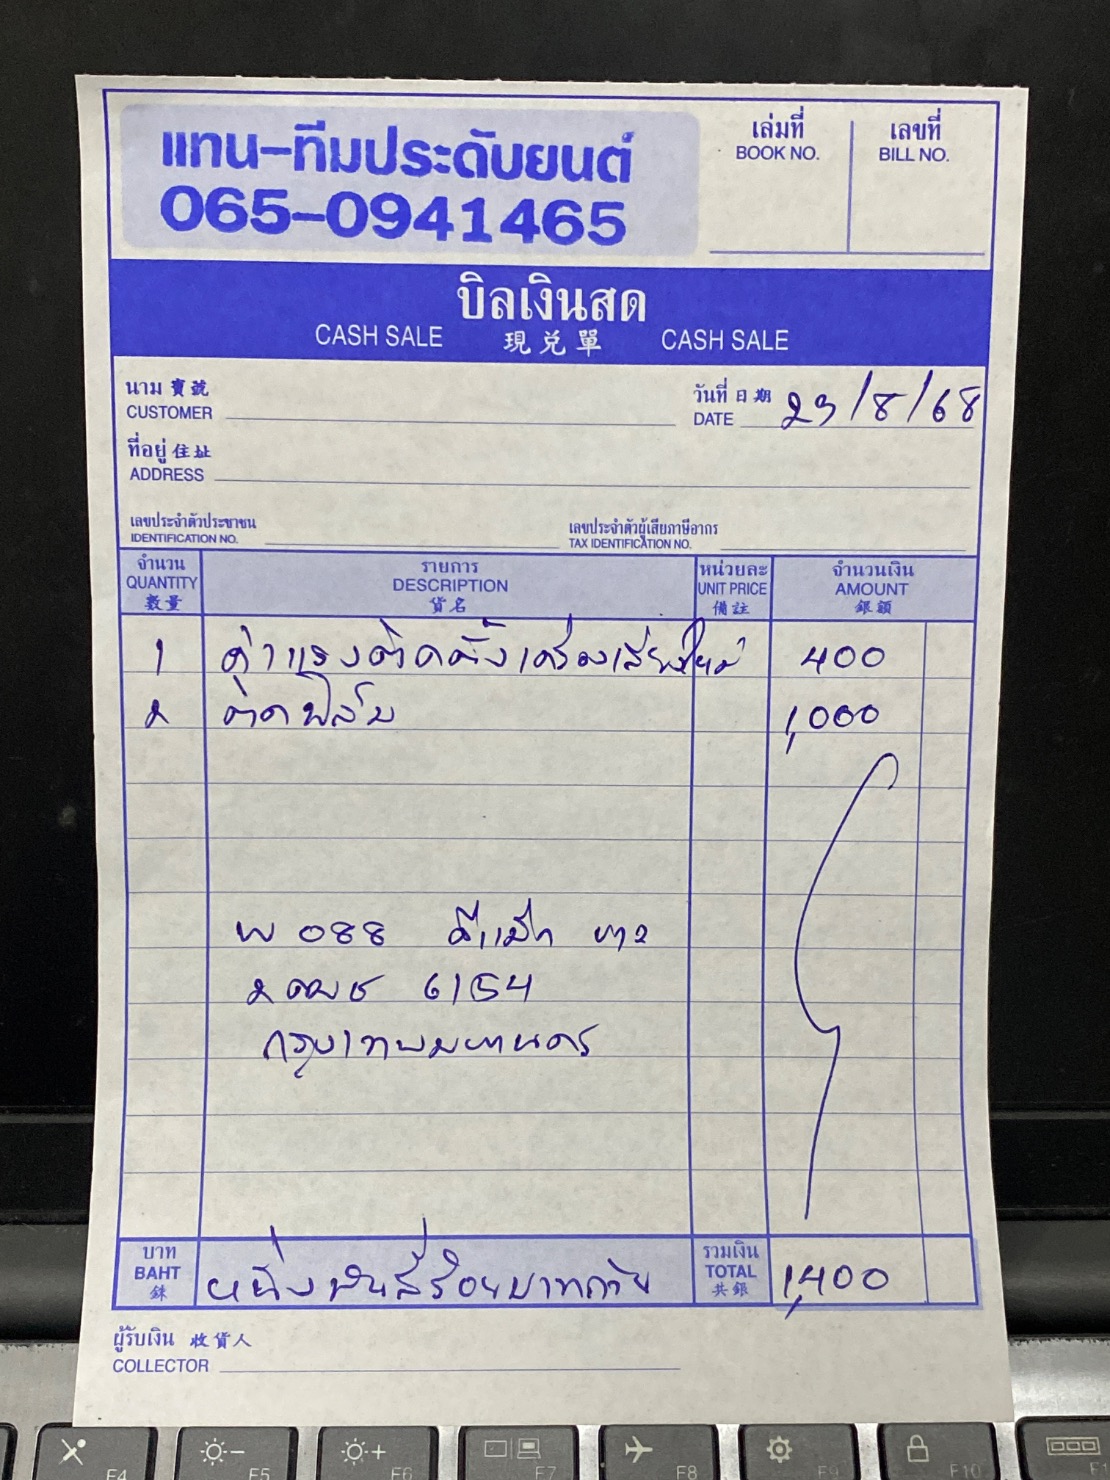 แทน-ทีมประดับยนต์
065-0941465
เล่มที่
BOOK NO.
เลขที่
BILL NO.
บิลเงินสด
CASH SALE 現兌單 CASH SALE
นาม 寶號
CUSTOMER
วันที่ 日期
DATE 23/8/68
ที่อยู่ 住址
ADDRESS
เลขประจำตัวประชาชน
IDENTIFICATION NO.
เลขประจำตัวผู้เสียภาษีอากร
TAX IDENTIFICATION NO.
จำนวน รายการ หน่วยละ จำนวนเงิน
QUANTITY DESCRIPTION UNIT PRICE AMOUNT
數量 貨名 備註 銀額
1 ค่าแรงติดตั้งเครื่องเสียงใหม่ 400
2 ติดฟิล์ม 1,000
พ 088 ดีแม็ก
2 ฒช 6154
กรุงเทพมหานคร
บาท
BAHT
銖
หนึ่งพันสี่ร้อยบาทถ้วน
รวมเงิน
TOTAL
共銀
1,400
ผู้รับเงิน 收貨人
COLLECTOR
F4 F5 F6 F7 F8 F9 F10